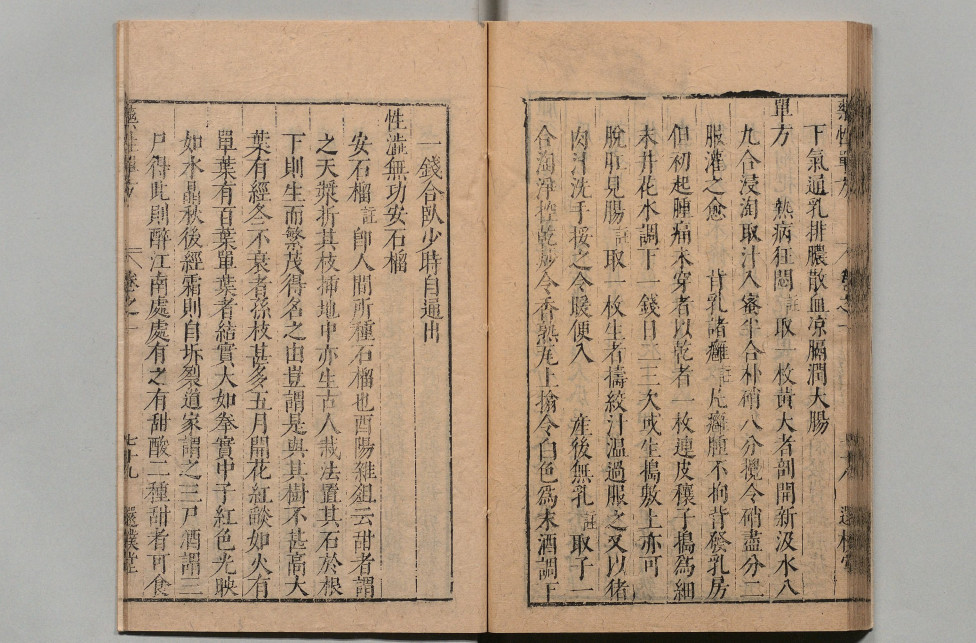 下氣通乳排膿散血涼膈潤大腸
單方　熱病狂悶註取一枚黃大者剖開新汲水八
九合浸淘取汁入蜜半合朴硝八分攪令硝盡分二
服灌之愈　背乳諸癰註凡癰腫不拘背發乳房
但初起腫痛未穿者以乾者一枚連皮穰子搗為細
末井花水調下一錢日三三次或生搗敷上亦可
脫肛見腸註取一枚生者擣絞汁温過服之又以猪
肉汁洗手挼之令暖便入　產後無乳註取子一
合淘淨控乾炒令香熟瓦上搶令白色為末酒調下
一錢合臥少時自通出
性澁無功安石榴
安石榴註即人間所種石榴也酉陽雜俎云甜者謂
之天漿折其枝揷地中亦生古人栽法置其石於根
下則生而繁茂得名之由豈謂是與其樹不甚高大
葉有經冬不衰者孫枝甚多五月開花紅燄如火有
單葉有百葉單葉者結實大如拳實中子紅色光映
如水晶秋後經霜則自坼裂道家謂之三尸酒謂三
尸得此則醉江南處處有之有甜酸二種甜者可食
卷之一
七十九